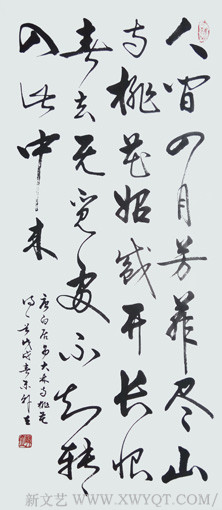 人间四月芳菲尽山
寺桃花始盛开长恨
春去无觅处不知转
入此中来
唐白居易大林寺桃花
诗一首戊戌春
新文艺 WWW.XWYQT.COM